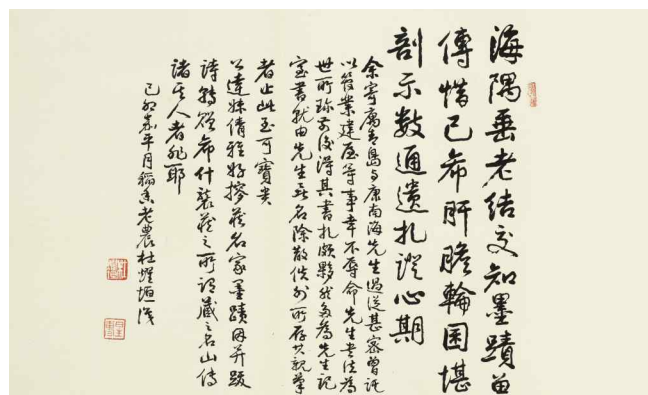 海隅垂老結交知墨蹟留
傳惜已希肝膽輪囷堪
剖示數通遺扎證心期
余寄寓青島與康南海先生過從甚密曾託
以營業建屋等事幸不辱命先生書法為
世所珍前後得其書扎頗夥然多為先生記
室書就由先生簽名除散佚外所存其親筆
者止此至可寶貴
公達妹倩雅好搜藏名家墨蹟因并跋
詩轉貽希什襲藏之所謂藏之名山傳
諸其人者非耶
己卯嘉平月稻香老農杜耀垣識